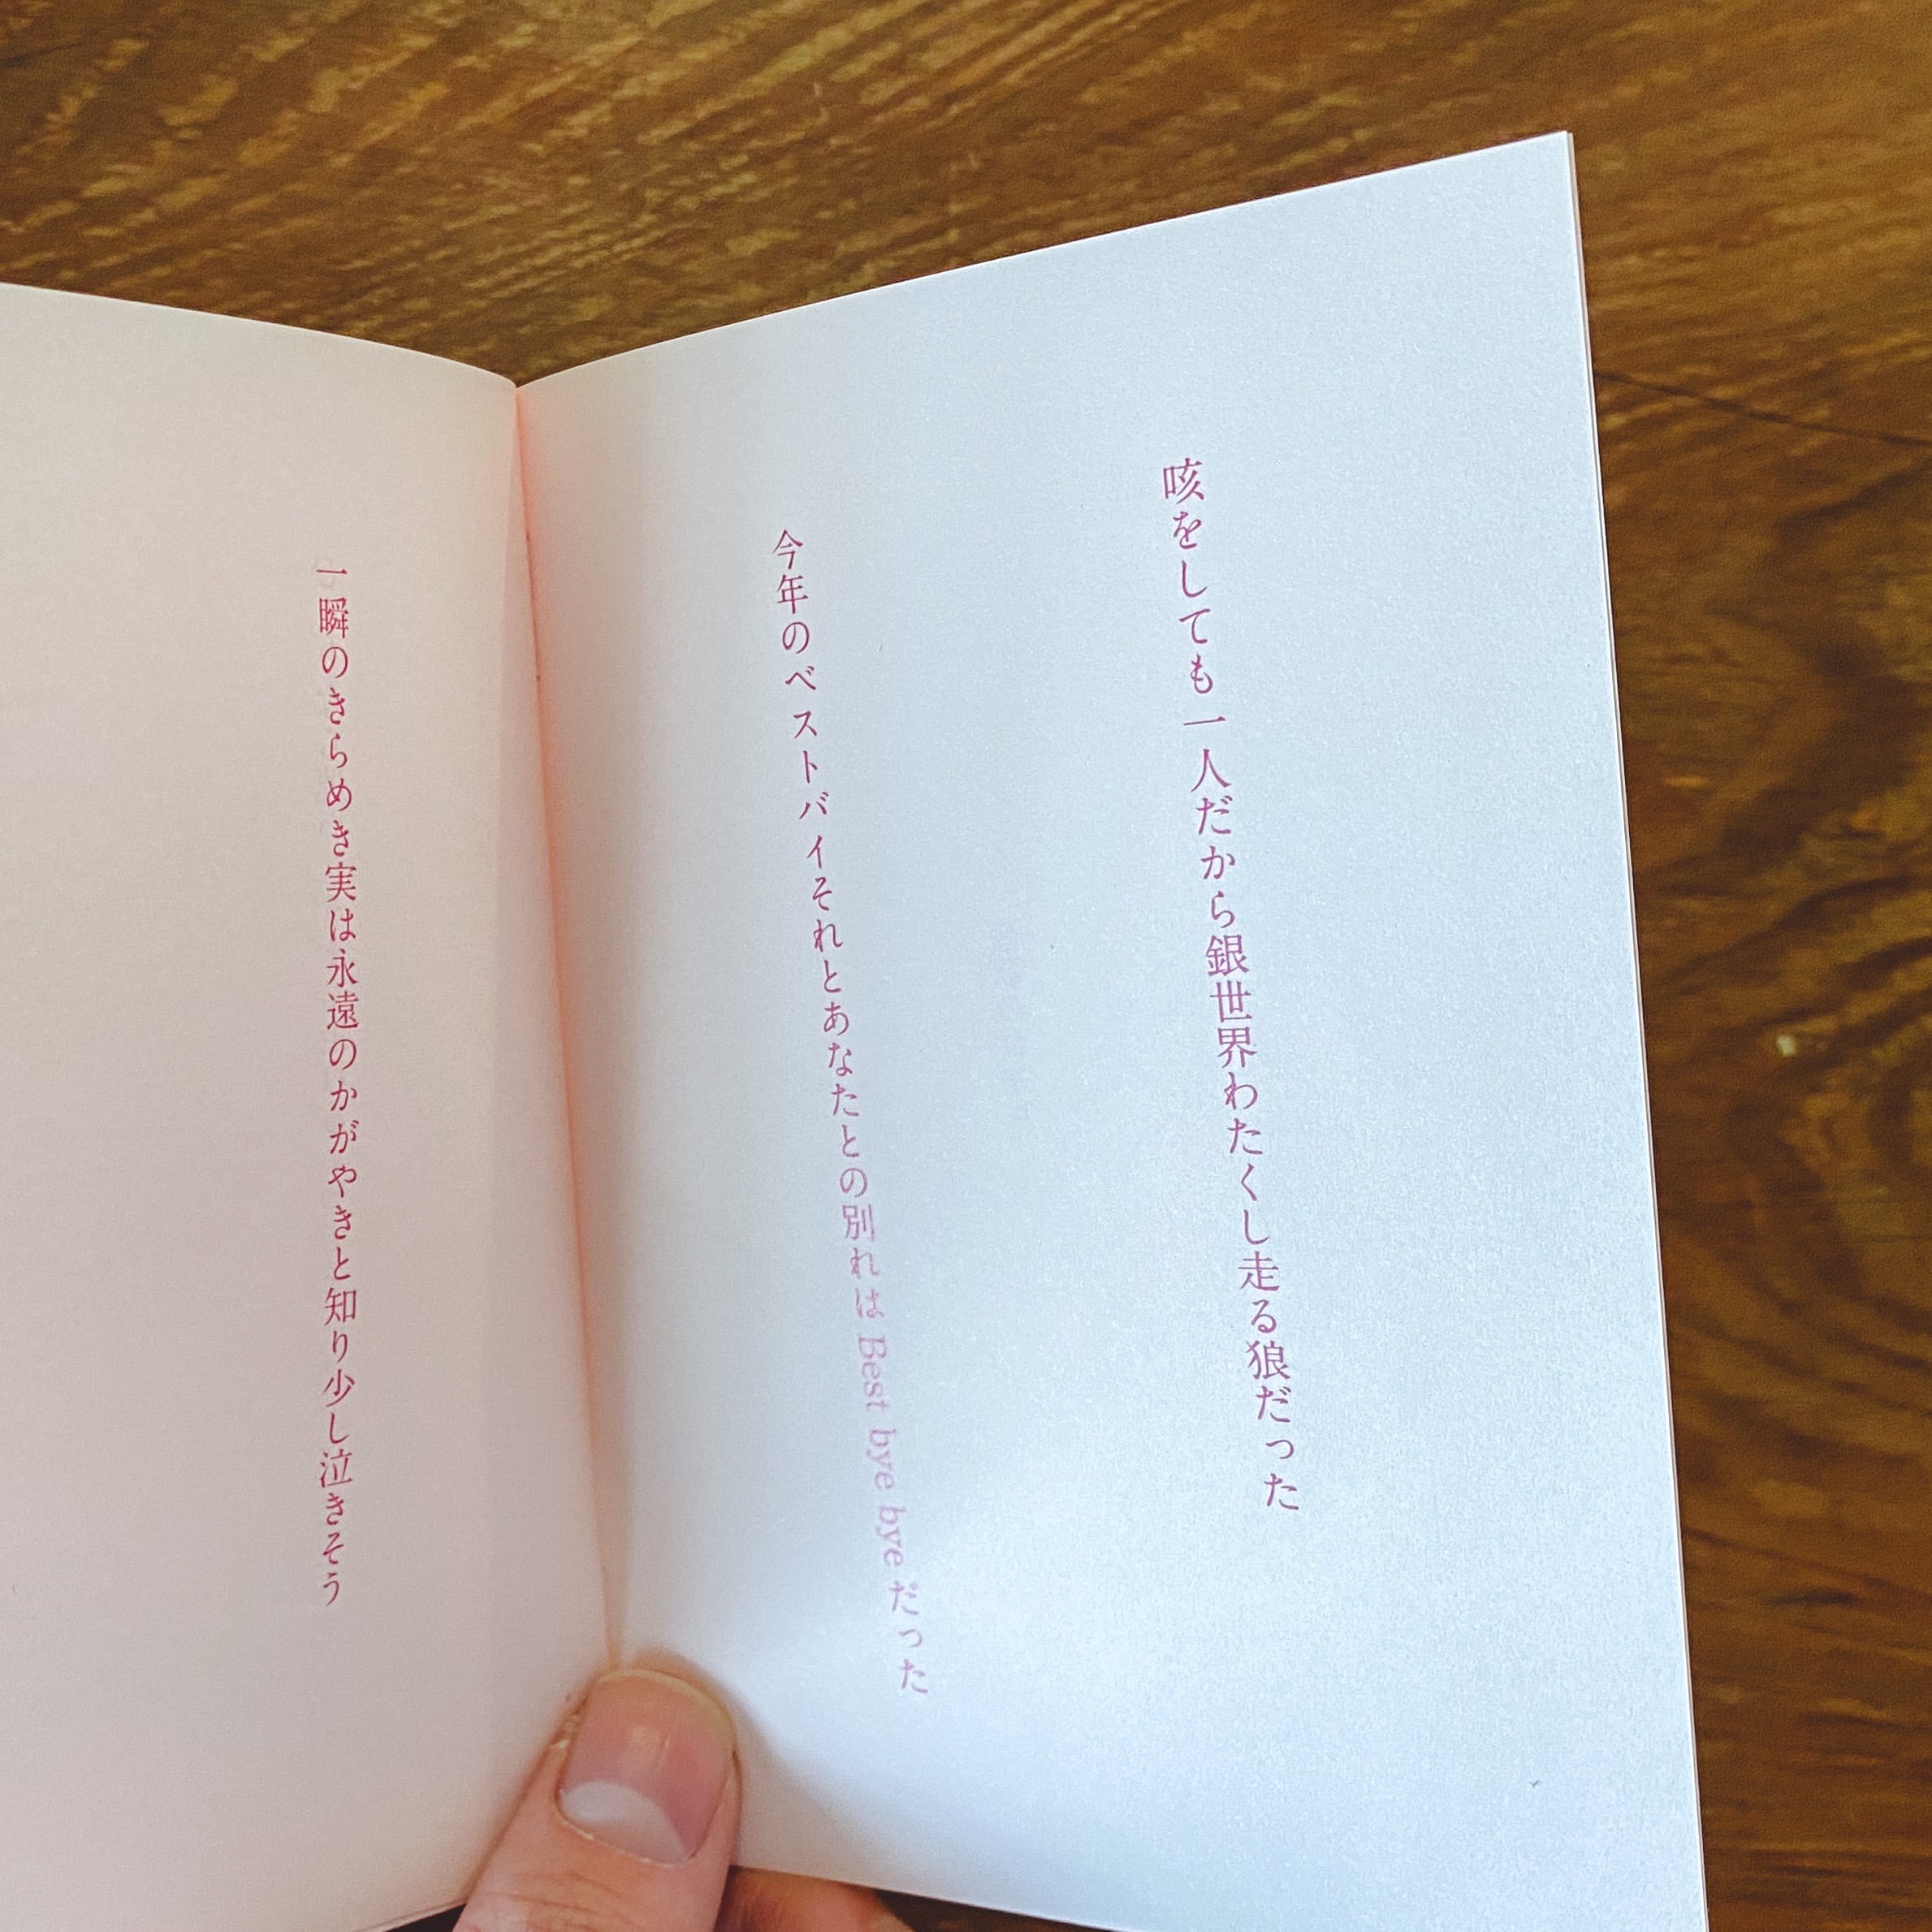 咳をしても一人だから銀世界わたくし走る狼だった
今年のベストバイそれとあなたとの別れは Best bye bye だった
一瞬のきらめき実は永遠のかがやきと知り少し泣きそう